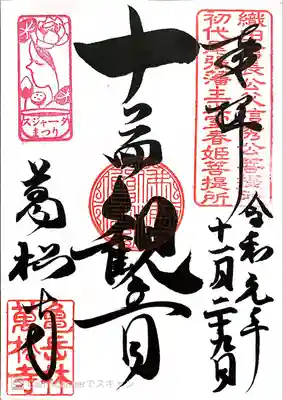 織田信長公父信秀公菩提所
初代尾張藩主正室春姫菩提所
奉拝
令和元年
十一月
十一面観音
スジャータ
まつり
萬松寺
龜岳林
萬松寺
CamScannerでスキャン